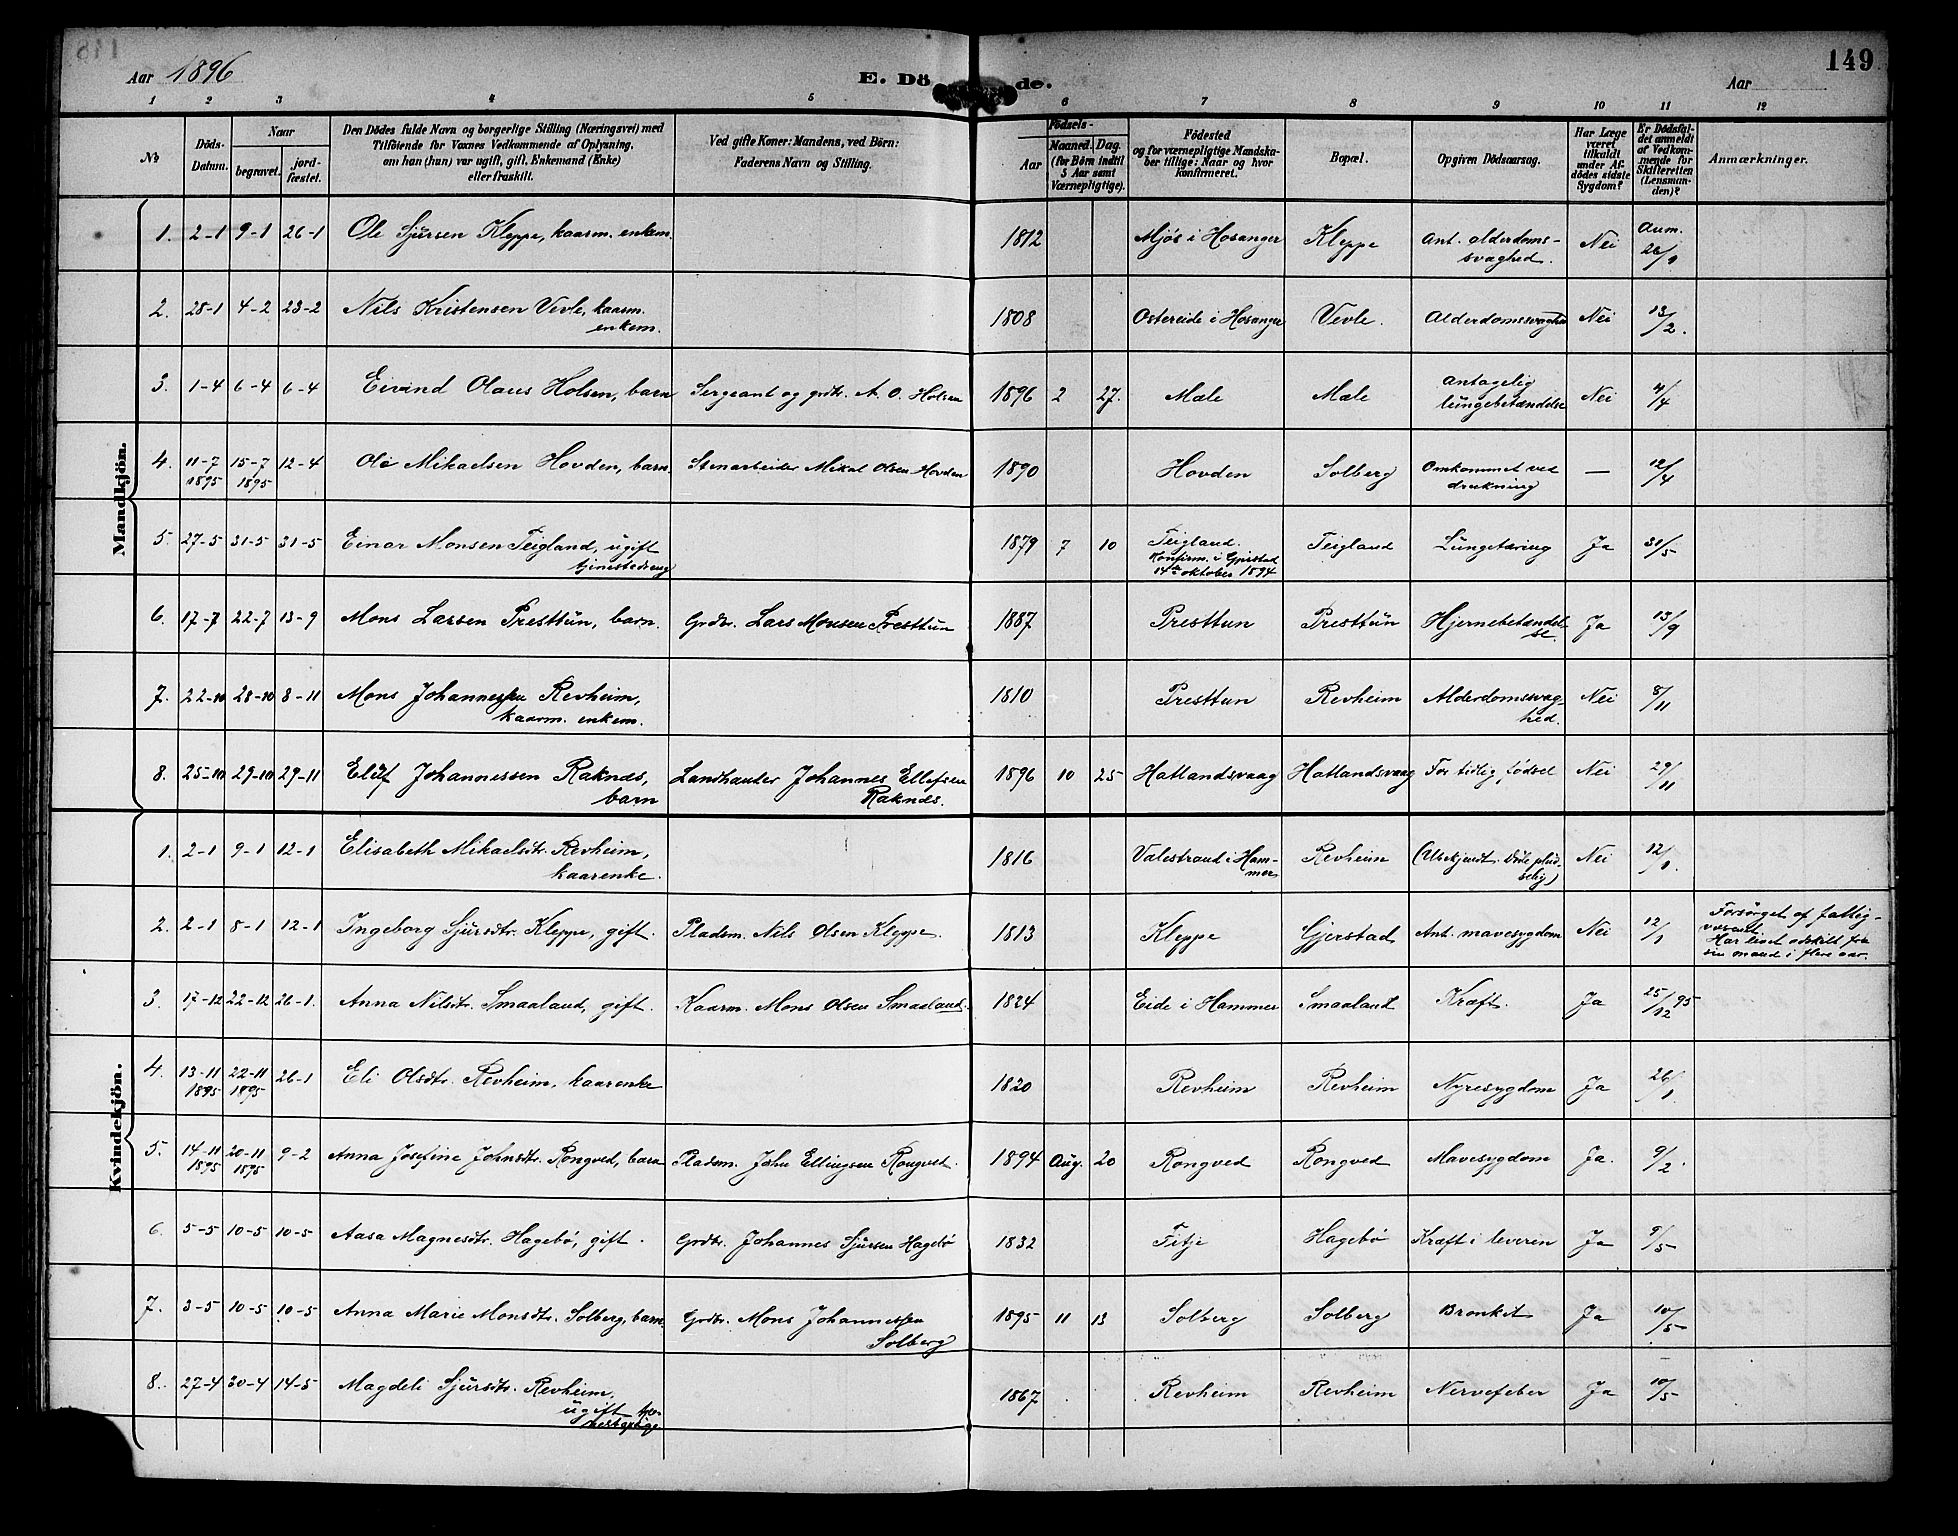 149
Aar 1896 E. Dö de. Aar
1 2 3 4 5 6 7 8 9 10 11 12
No
Döds-Datum.
Naar
begravet.
jord-fæstet.
Den Dödes fulde Navn og borgerlige Stilling (Næringsvei) med
Tilföiende for Voxnes Vedkommende af Oplysning,
om han (hun) var ugift, gift, Enkemand (Enke)
eller fraskilt.
Ved gifte Koner: Mandens, ved Börn:
Faderens Navn og Stilling.
Födsels-
Aar
Maaned. Dag.
(for Börn indtil
5 Aar samt
Værnepligtige).
Födested
og for værnepligtige Mandska-
ber tillige: Naar og hvor
konfirmeret.
Bopæl.
Opgiven Dödsaarsag.
Har Læge
været
tilkaldt
under Af-
dödes sidste
Sygdom?
Er Dödsfal-
det anmeldt
af Vedkom-
mende for
Skifteretten
(Lensman-
den)?
Anmærkninger.
Mandkjön.
1. 2-1 9-1 26-1 Ole Sjursen Kleppe, kaarm. enkem. 1812 Mjøs i Hosanger Kleppe Ant. alderdoms-svaghed. Nei Anm. 26/1
2. 28-1 4-2 23-2 Nils Kristensen Vevle, kaarm. enkem. 1808 Ostereide i Hosanger Vevle. Alderdomssvaghed Nei 13/2.
3. 1-4 6-4 6-4 Eivind Olaus Holsen, barn Sergeant og grdbr. A. O. Holsen 1896 2 27. Mæle Mæle Antagelig lungebetændelse Nei 4/4
4. 11-7 1895 15-7 1895 12-4 Ole Mikaelsen Hovden, barn Stenarbeider Mikal Olsen Hovden 1890 Hovden Solberg Omkommet ved drukning — 12/4
5. 27-5 31-5 31-5 Einar Monsen Teigland, ugift tjenestedreng 1879 7 10 Teigland. Konfirm. i Gjerstad 14de oktober 1894 Teigland Lungetæring Ja 31/5
6. 17-7 22-7 13-9 Mons Larsen Presttun, barn. Grdbr. Lars Monsen Presttun 1887 Presttun Presttun Hjernebetændelse. Ja 13/9
7. 22-10 28-10 8-11 Mons Johannessen Revheim, kaarm. enkem. 1810 Presttun Revheim Alderdomssvag-hed. Nei 8/11
8. 25-10 29-10 29-11 Eluf Johannessen Raknæs, barn Landhandler Johannes Ellefsen Raknæs. 1896 10 25 Hatlandsvaag Hatlandsvaag For tidlig fødsel Nei 29/11
Kvindekjön.
1. 2-1 9-1 12-1 Elisabeth Mikaelsdtr. Revheim, kaarenke. 1816 Valestrand i Hammer Revheim (Ubekjendt. Døde pludselig) Nei 12/1.
2. 2-1 8-1 12-1 Ingeborg Sjursdtr. Kleppe, gift. Pladsm. Nils Olsen Kleppe. 1813 Kleppe Gjerstad Ant. mavesygdom Nei 12/1 Forsørget af fattig-væsenet. Har levet adskilt fra sin mand i flere aar.
3. 17-12 22-12 26-1. Anna Nilsdtr. Smaaland, gift. Kaarm. Mons Olsen Smaaland. 1824 Eide i Hammer Smaaland Kræft. Ja 25/12 95
4. 13-11 1895 22-11 1895 26-1 Eli Olsdtr. Revheim, kaarenke 1820 Revheim Revheim Nyresygdom Ja 26/1
5. 14-11 1895 20-11 1895 9-2 Anna Josefine Johnsdtr. Rongved, barn Pladsm. John Ellingsen Rongved. 1894 Aug. 20 Rongved Rongved Mavesygdom Ja. 9/2.
6. 5-5 10-5 10-5 Aasa Magnesdtr. Hagebø, gift. Grdbr. Johannes Sjursen Hagebø 1832 Fitje Hagebø Kræft i leveren Ja 9/5
7. 3-5 10-5 10-5 Anna Marie Monsdtr. Solberg, barn Grdbr. Mons Johannessen Solberg 1895 11 13 Solberg Solberg Bronkit Ja 10/5
8. 27-4 30-4 14-5 Magdeli Sjursdtr. Revheim, ugift 1867 Revheim Revheim Nervefeber Ja 10/5